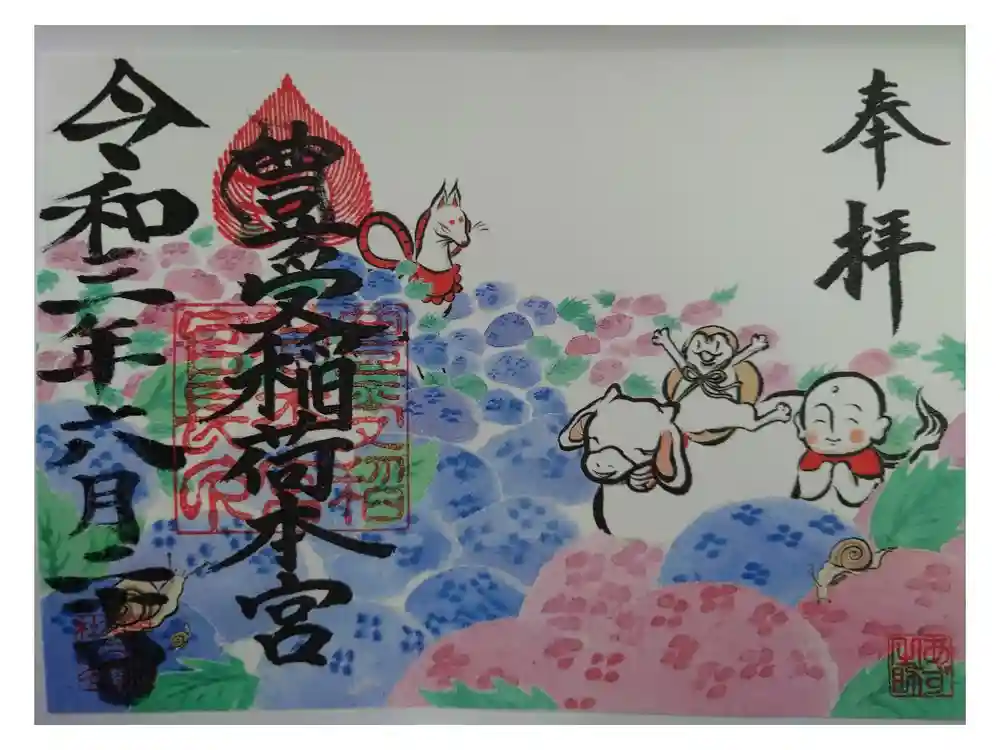 奉拝
豊受稲荷本宮
令和二年六月二十日